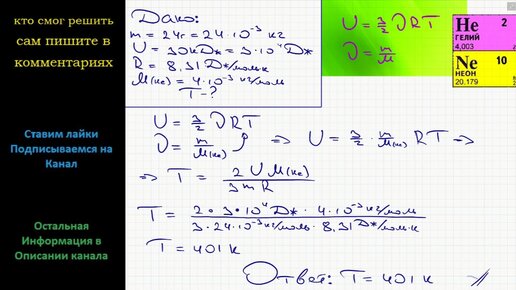 кто смог решить
сам пишите в
комментариях
Ставим лайки
Подписываемся на
Канал
Остальная
Информация в
Описании канала
Дано:
m = 24г = 24·10⁻³ кг
U = 30кДж = 3·10⁴ Дж
R = 8,31 Дж/моль·к
M(He) = 4·10⁻³ кг/моль
T - ?
U = 3/2 ν R T
ν = m/M
He 2
ГЕЛИЙ
4,003
Ne 10
НЕОН
20.179
U = 3/2 ν R T
ν = m/M(He) => U = 3/2 · m/M(He) R T =>
=> T = 2 U M(He) / 3 m R
T = 2 · 3·10⁴ Дж · 4·10⁻³ кг/моль / 3·24·10⁻³ кг/моль · 8,31 Дж/моль·к
T = 401 к
Ответ: T = 401 к